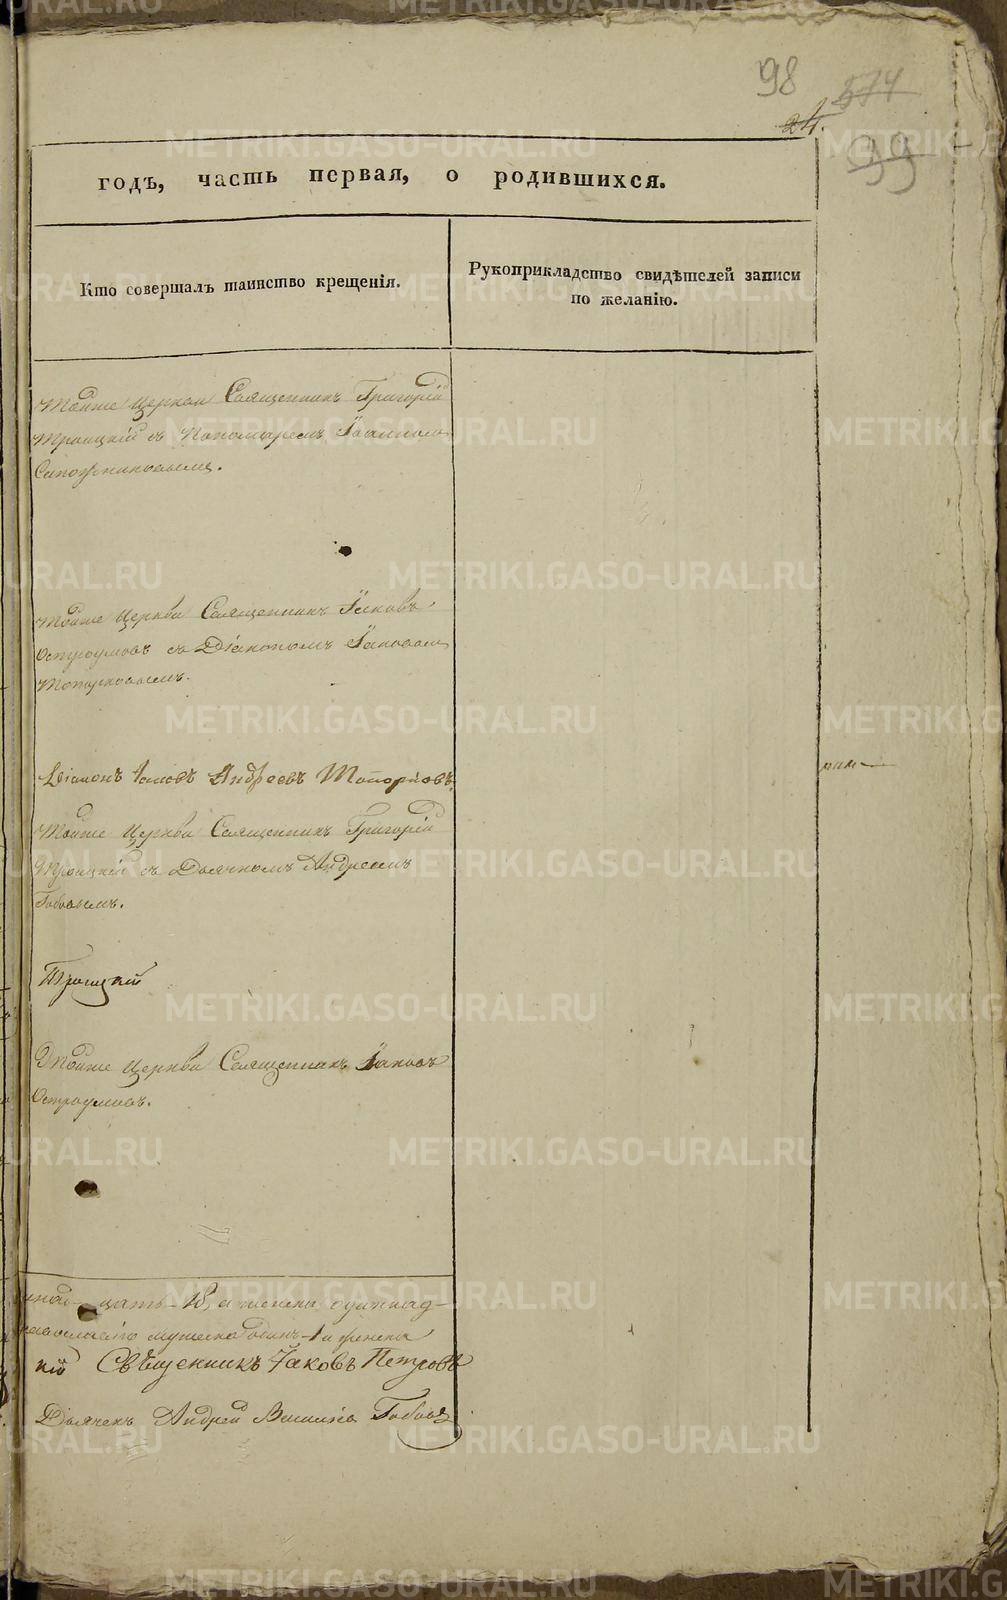 98
574
24.
99
годъ, часть первая, о родившихся.
Кто совершалъ таинство крещенія.
Рукоприкладство свидѣтелей записи
по желанію.
Тойже Церкви Священникъ Григорій
Троицкій съ Пономаремъ Іоанномъ
Сапожниковымъ.
Тойже Церкви Священникъ Іаковъ
Остроумовъ съ Діакономъ Іаковомъ
Топорковымъ.
Діаконъ Іаковъ Андреевъ Топорковъ.
Тойже Церкви Священникъ Григорій
Троицкій съ Дьячкомъ Андреемъ
Бабовымъ.
Троицкій
Тойже Церкви Священникъ Іаковъ
Остроумовъ.
цать-18, а женска одиннад-
мужеска одинъ-1 и женска
кій Священникъ Іаковъ Петровъ
Дьячекъ Андрей
METRIKI.GASO-URAL.RU